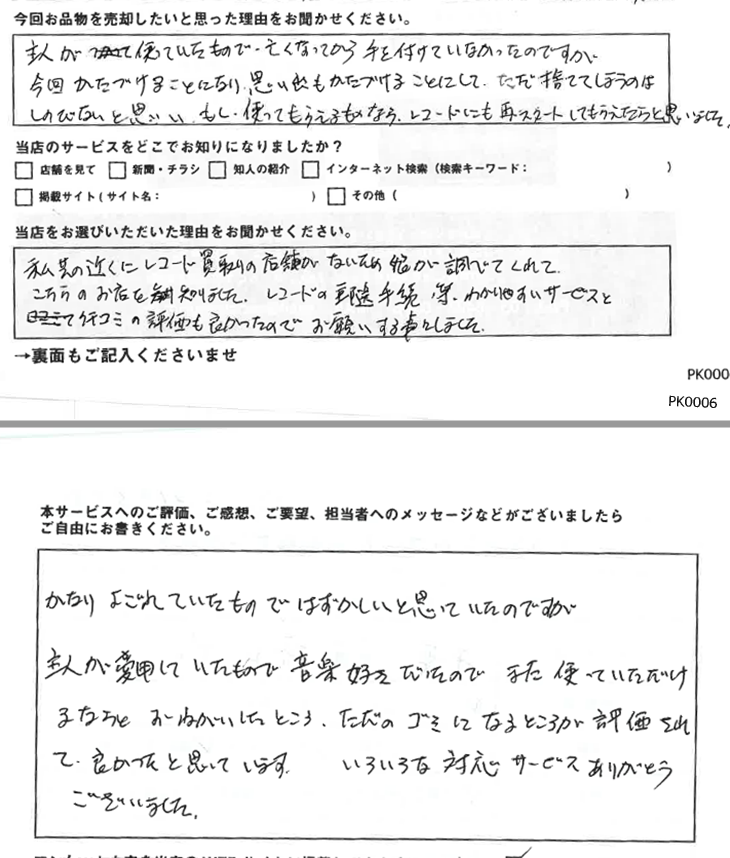 今回お品物を売却したいと思った理由をお聞かせください。
主人が使っていたもので、亡くなってから手を付けていなかったのですが
今回かたづけることになり、思い出もかたづけることにして、ただ捨ててしまうのは
しのびないと思い、もし、使ってもらえるものなら、レコードにも再スタートしてもらえたらと思いました。
当店のサービスをどこでお知りになりましたか？
□ 店舗を見て □ 新聞・チラシ □ 知人の紹介 □ インターネット検索（検索キーワード： ）
□ 掲載サイト（サイト名： ） □ その他（ ）
当店をお選びいただいた理由をお聞かせください。
私共の近くにレコード買取りの店舗がないため 娘が調べてくれて、
こちらのお店を知りました。レコードの郵送手続等、わかりやすいサービスと
口コミの評価も良かったのでお願いする事にしました。
→裏面もご記入くださいませ
PK000
PK0006
本サービスへのご評価、ご感想、ご要望、担当者へのメッセージなどがございましたら
ご自由にお書きください。
かなりよごれていたものではずかしいと思っていたのですが
主人が愛用していたもので音楽好きだったので また使っていただけ
るならと おねがいしたところ、ただのゴミになるところが評価され
て、良かったと思っています。 いろいろな対応サービスありがとう
ございました。